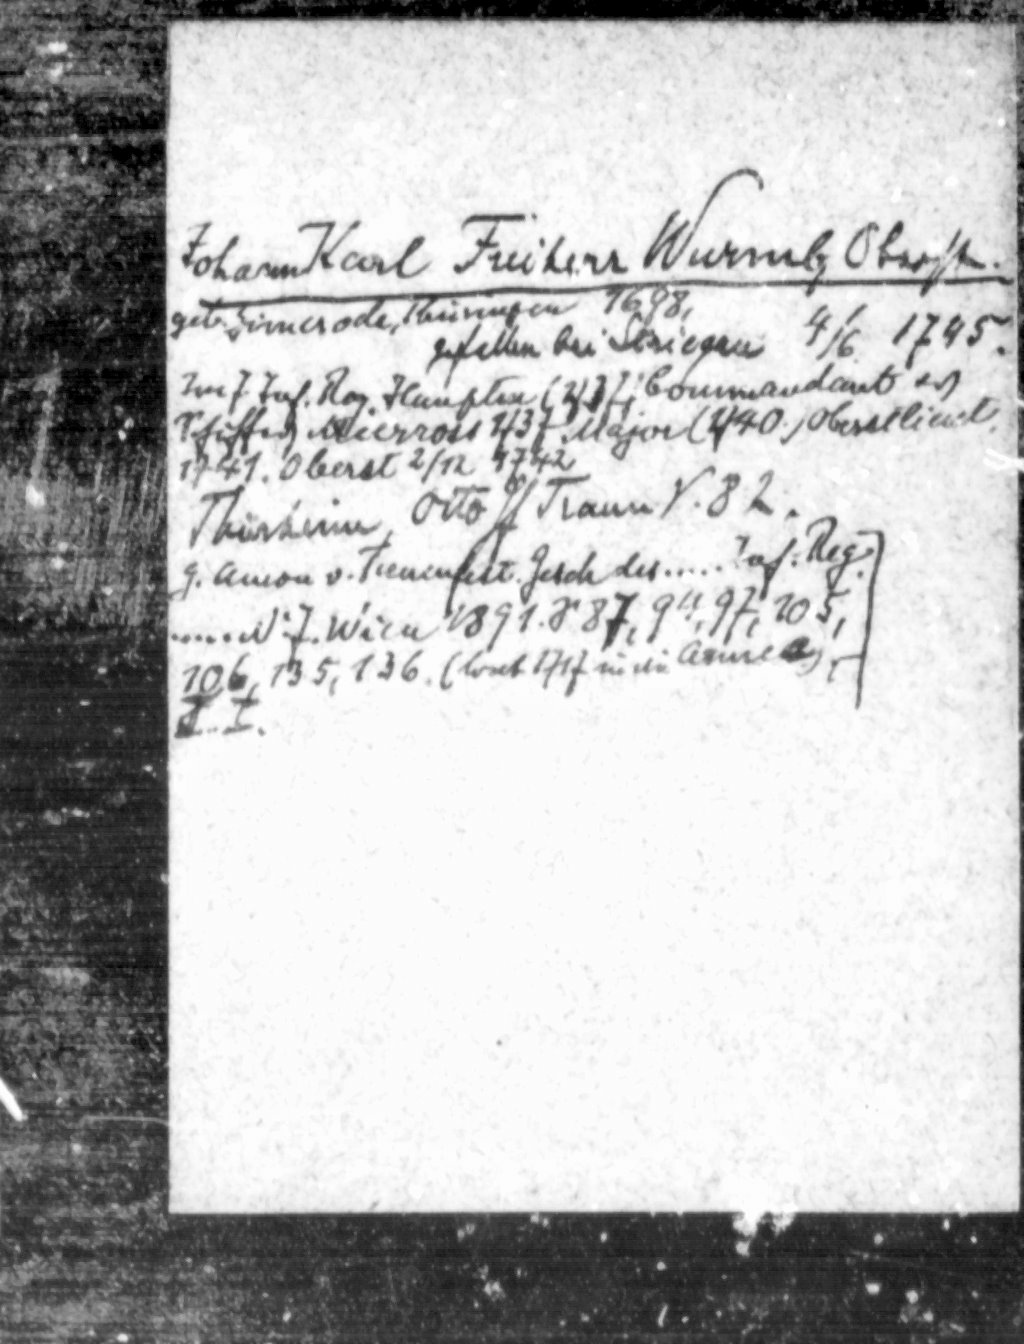 Johann Karl Freiherr Wurmb, Oberst.
geb. Zimerode, Thüringen 1698,
gefallen bei Striegau 4/6 1745.
Im 7. Inf. Reg. Hauptm (1717), Commandant
Major (1740) Oberstlieut.
1741. Oberst 2/12 1742
Thürheim, Otto Traun S. 82.
G. Amon v. Treuenfest. Gesch des ..... Inf. Reg.
..... N° 7. Wien 1891. S 87, 94, 97, 105,
106, 135, 136. (trat 1717 in die Armee)